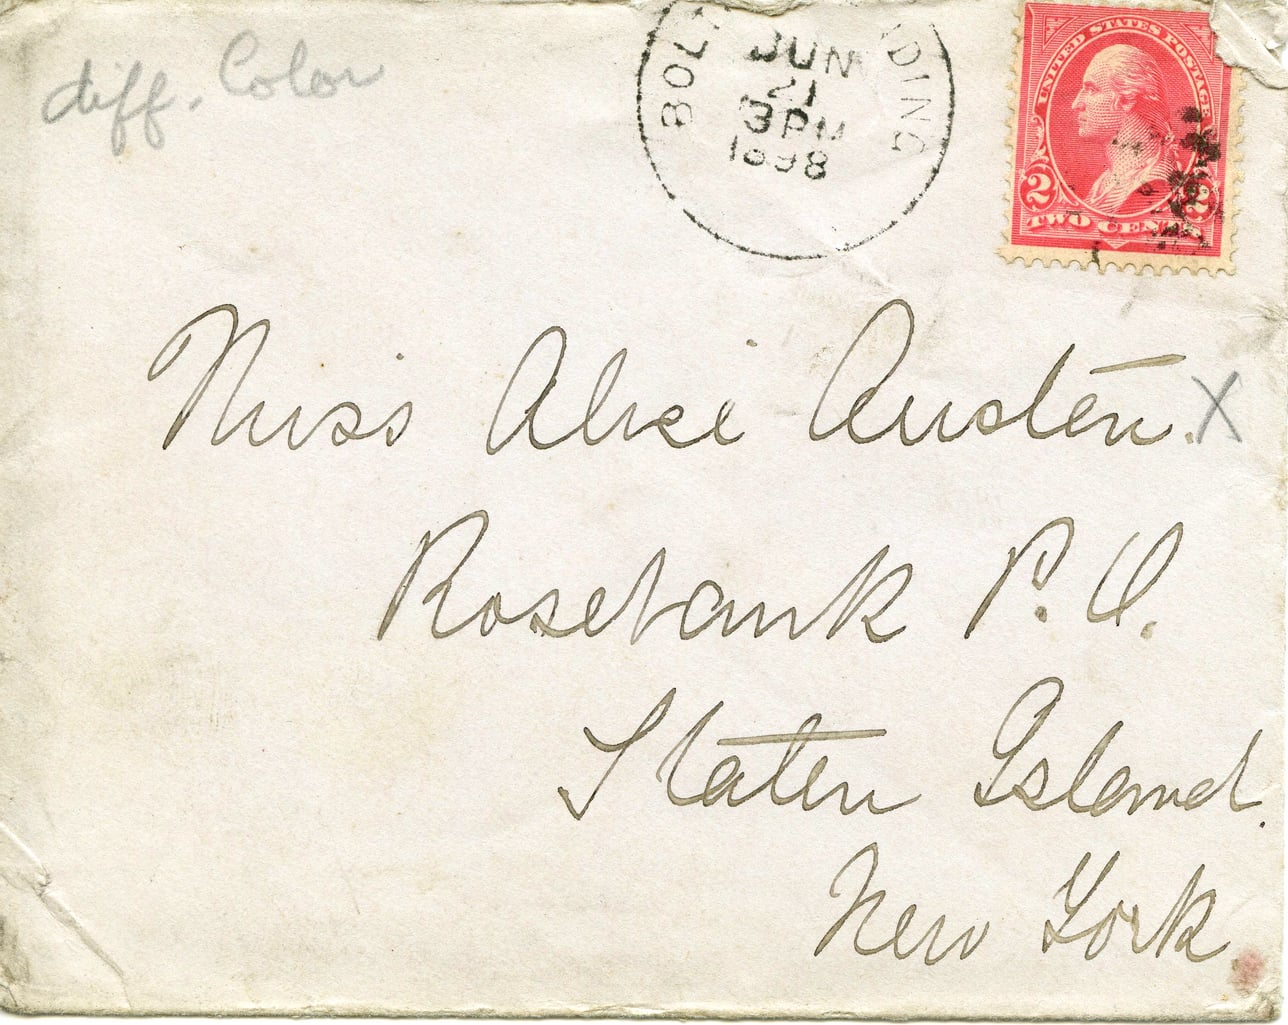 diff. Color
JUN
21
3 PM
1898
UNITED STATES POSTAGE
2 2
TWO CENTS
Miss Alice Austen. X
Rosebank P. O.
Staten Island.
New York.